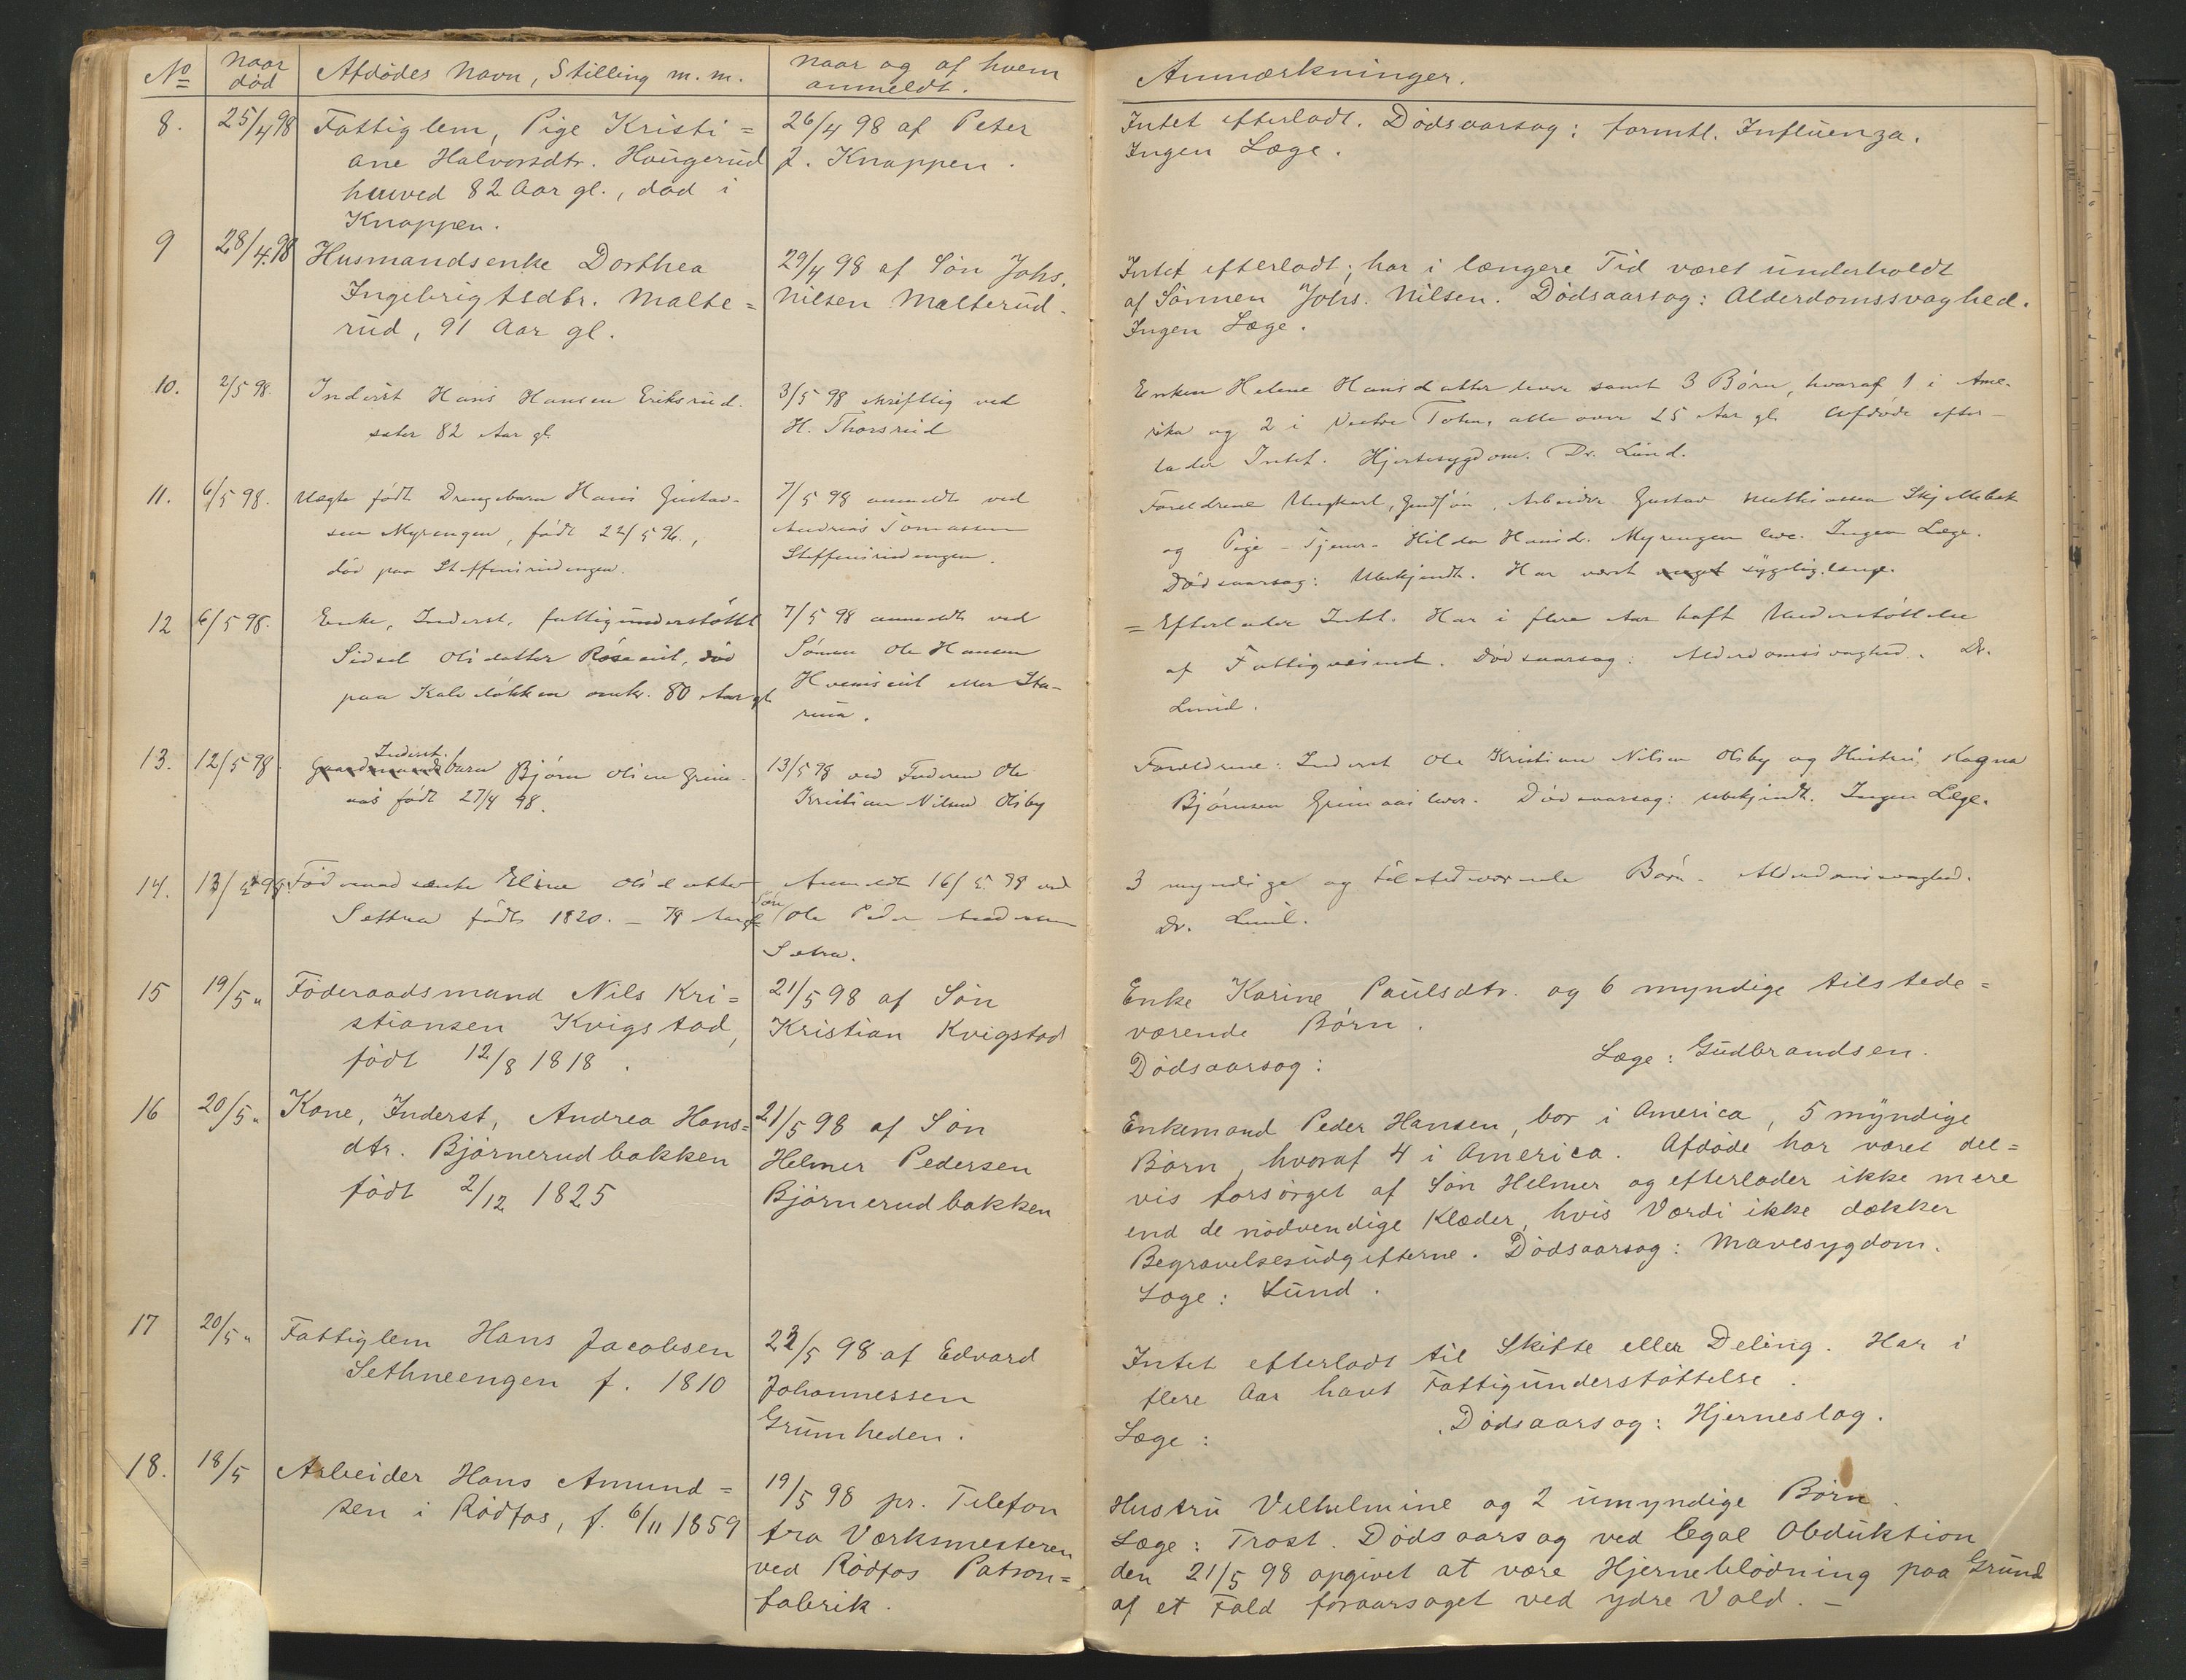 No
naar død
Afdødes Navn, Stilling m. m.
naar og af hvem anmeldt.
Anmærkninger.
8.
25/4 98
Fattiglem, Pige Kristi=
ane Halvorsdtr. Haugerud
henved 82 Aar gl., død i
Knappen.
26/4 98 af Peter
J. Knappen.
Intet efterladt. Dødsaarsag: formtl. Influenza.
Ingen Læge.
9
28/4.98
Husmandsenke Dorthea
Ingebrigtsdtr. Malte=
rud, 91 Aar gl.
29/4 98 af Søn Johs.
Nilsen Malterud.
Intet efterladt; har i længere Tid været underholdt
af Sønnen Johs. Nilsen. Dødsaarsag: Alderdomssvaghed.
Ingen Læge.
10.
2/5 98.
Inderst Hans Hansen Eriksrud
sæter 82 Aar gl.
3/5 98 skriftlig ved
H. Thorsrud
Enken Helene Hansdatter lever samt 3 Børn, hvoraf 1 i Ame-
rika og 2 i Vestre Toten, alle over 25 Aar gl. Afdøde efter-
lader Intet. Hjertesygdom. Dr. Lund.
11.
6/5 98.
Uægte født Drengebarn Hans Gustav-
sen Myrengen, født 22/5 96.,
død paa Steffensrudengen.
7/5 98 anmeldt ved
Andreas Tomassen
Steffensrudengen.
Forældrene Ungkarl, Arbeider Gustav Mathiassen Skjellebæk
og Pige - Tjener - Hilda Hansd. Myrengen leve. Ingen Læge.
Dødsaarsag: Ubekjendt. Har været meget sygelig længe.
12
6/5 98.
Enke, Inderst, fattigunderstøttet
Sidsel Olsdatter død
paa Kalveløkken omkr. 80 Aar gl
7/5 98 anmeldt ved
Sønnen Ole Hansen
= Efterlader Intet. Har i flere Aar haft Understøttelse
af Fattigvæsenet. Dødsaarsag: Alderdomssvaghed. Dr.
Lund.
13.
12/5 98.
Inderst.
Gaardmandsbarn Bjørn Olsen Grim-
aas født 27/4 98.
13/5 98 ved Faderen Ole
Kristian Nilsen Olsby
Forældrene: Inderst Ole Kristian Nilsen Olsby og Hustru Ragna
Bjørnsen Grimaas lever. Dødsaarsag: ubekjendt. Ingen Læge.
14.
13/5 98.
Føderaadsenke Eline Olsdatter
Settra født 1820. - 78 Aar gl
Anmeldt 16/5 98 ved
Søn Ole Peder Andersen
Setra.
3 myndige og tilstedværende Børn. Alderdomssvaghed.
Dr. Lund.
15
19/5 "
Føderaadsmand Nils Kri=
stiansen Kvigstad,
født 12/8 1818.
21/5 98 af Søn
Kristian Kvigstad
Enke Karine Paulsdtr. og 6 myndige tilstede=
værende Børn.
Dødsaarsag:
Læge: Gudbrandsen.
16
20/5 "
Kone, Inderst, Andrea Hans=
dtr. Bjørnerudbakken
født 2/12 1825
21/5 98 af Søn
Helmer Pedersen
Bjørnerudbakken
Enkemand Peder Hansen, bor i America, 5 myndige
Børn, hvoraf 4 i America. Afdøde har været del=
vis forsørget af Søn Helmer og efterlader ikke mere
end de nødvendige Klæder, hvis Værdi ikke dækker
Begravelsesudgifterne. Dødsaarsag: Mavesygdom.
Læge: Lund.
17
20/5 "
Fattiglem Hans Jacobsen
Sethneengen f. 1810
22/5 98 af Edvard
Johannessen
Grumheden.
Intet efterladt til Skifte eller Deling. Har i
flere Aar havt Fattigunderstøttelse.
Læge:
Dødsaarsag: Hjerneslag.
18.
18/5
Arbeider Hans Amund=
sen i Rødfos, f. 6/11 1859
19/5 98 pr. Telefon
fra Værksmesteren
ved Rødfos Patron=
fabrik.
Hustru Velhelmine og 2 umyndige Børn.
Læge: Trost. Dødsaarsag ved legal Obduktion
den 21/5 98 opgivet at være Hjerneblødning paa Grund
af et Fald foraarsaget ved ydre Vold. -